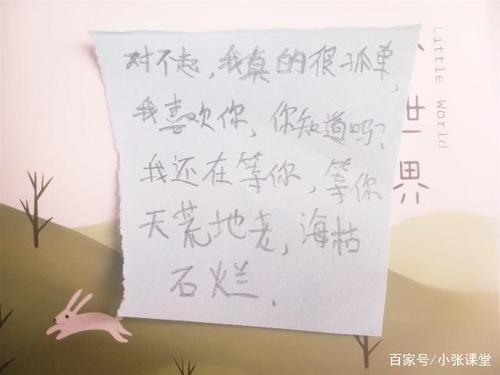 对不起，我真的很孤单，
我喜欢你，你知道吗？
我还在等你，等你
天荒地老，海枯
石烂．
Little World
世界
百家号/小张课堂